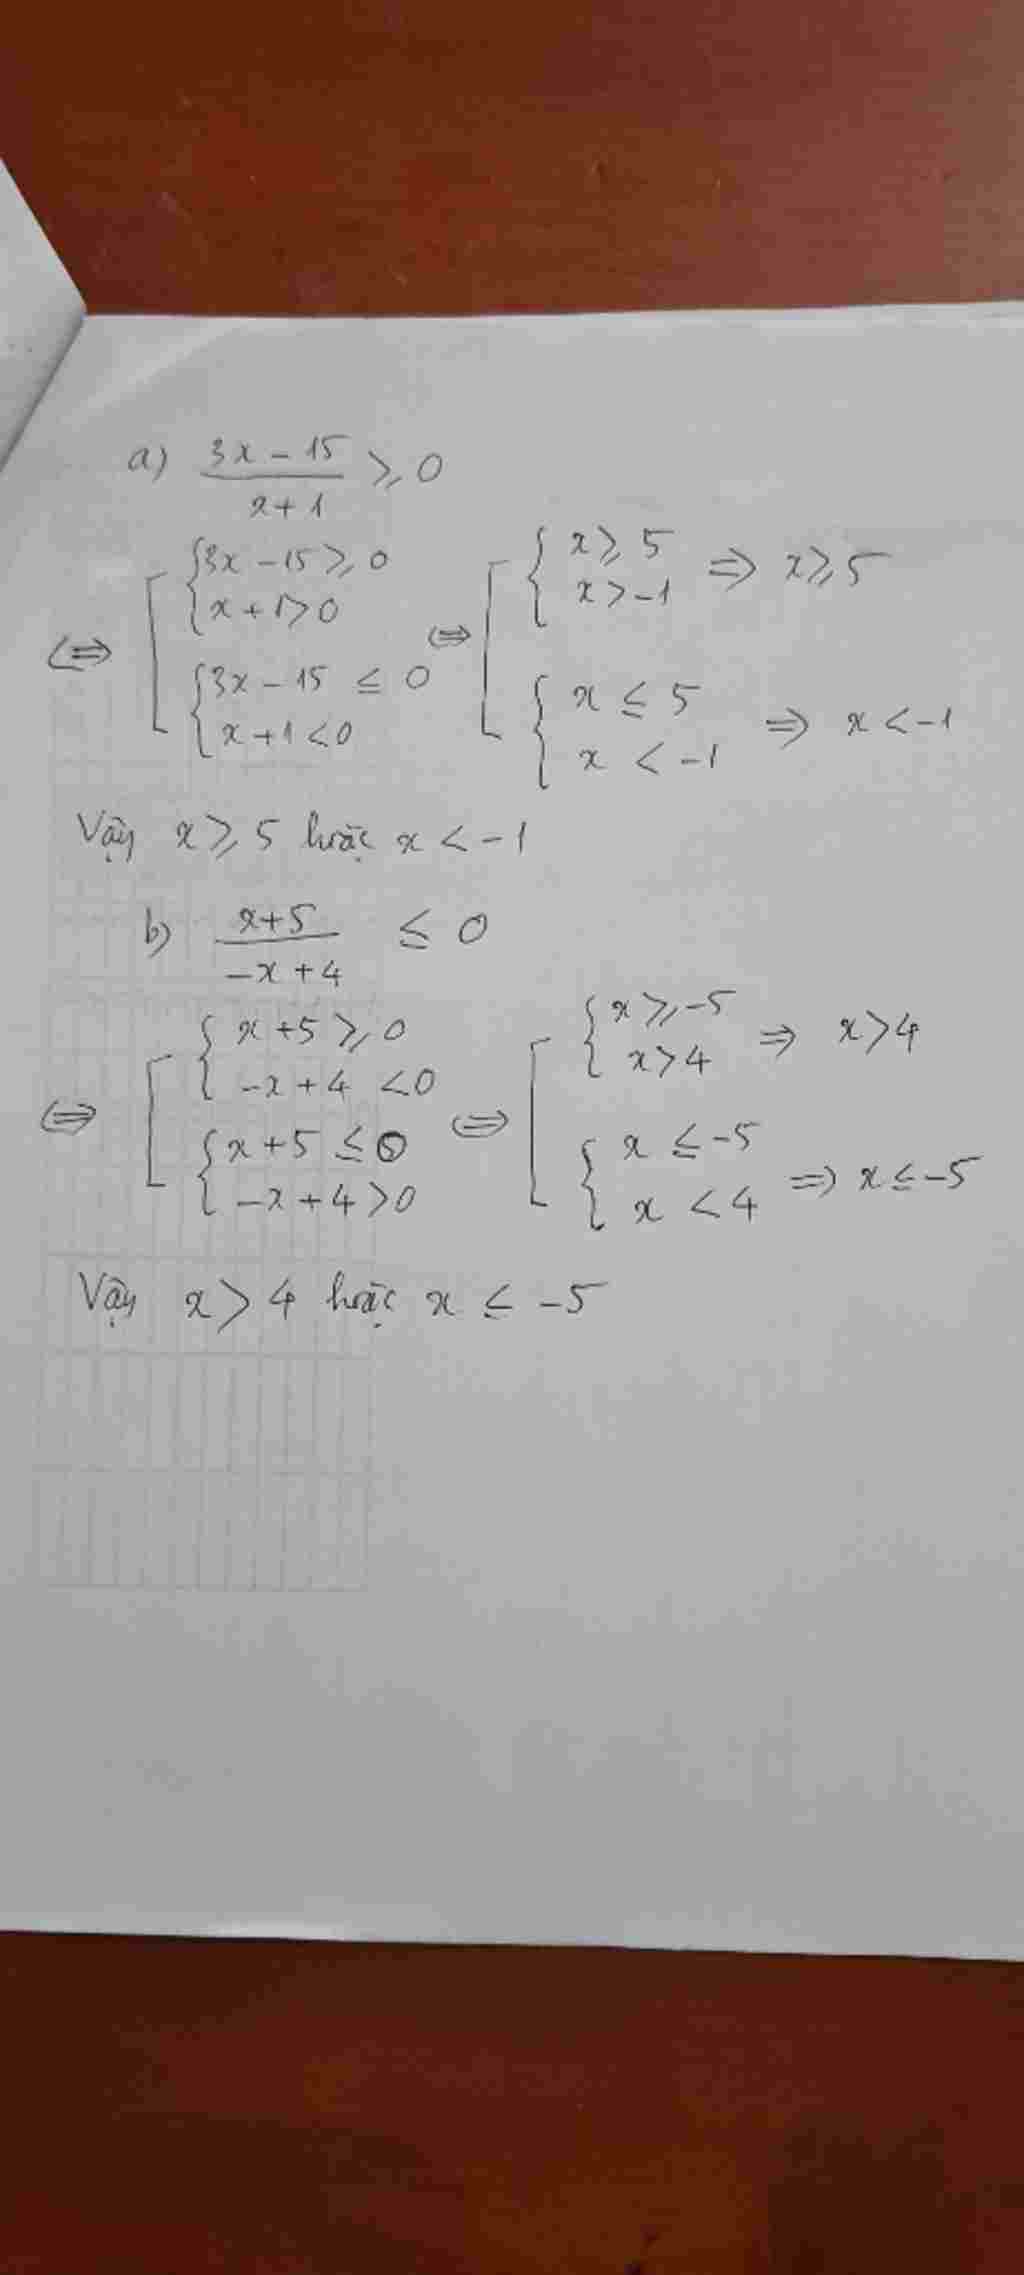 a) (3x - 15)/(x + 1) ⩾ 0
⇔ [ { 3x - 15 ⩾ 0
x + 1 > 0
{ 3x - 15 ≤ 0
x + 1 < 0
⇔ [ { x ⩾ 5
x > -1 ⇒ x ⩾ 5
{ x ≤ 5
x < -1 ⇒ x < -1
Vậy x ⩾ 5 hoặc x < -1
b) (x+5)/(-x+4) ≤ 0
⇔ [ { x + 5 ⩾ 0
-x + 4 < 0
{ x + 5 ≤ 0
-x + 4 > 0
⇔ [ { x ⩾ -5
x > 4 ⇒ x > 4
{ x ≤ -5
x < 4 ⇒ x ≤ -5
Vậy x > 4 hoặc x ≤ -5